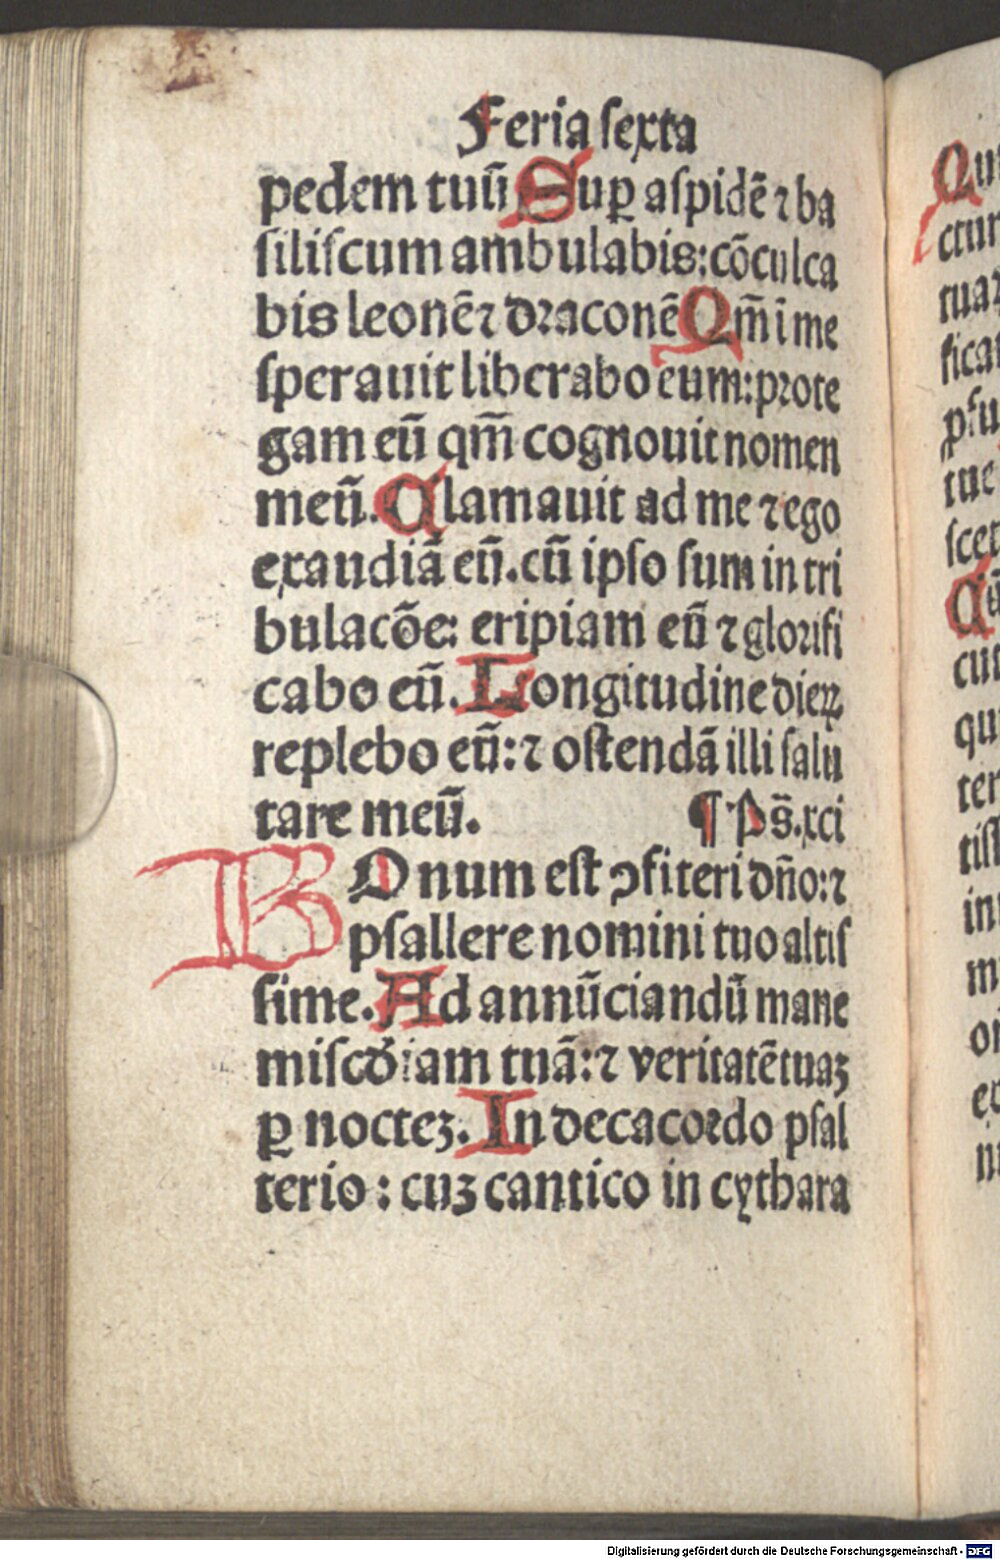 Feria ſexta
pedem tuū Suꝑ aſpidē ⁊ ba
ſiliſcum ambulabis: cōculca
bis leonē ⁊ draconē Qm̄ i me
ſperauit liberabo eum: prote
gam eū qm̄ cognouit nomen
meū. Clamauit ad me ⁊ ego
exaudiā eū. cū ipſo ſum in tri
bulacōe: eripiam eū ⁊ glorifi
cabo eū. Longitudine dieꝝ
replebo eū: ⁊ oſtendā illi ſalu
tare meū. ¶ Ps̄. xci
BOnum eſt ꝯfiteri dn̄o: ⁊
pſallere nomini tuo altiſ
ſime. Ad annūciandū mane
miſcd̄iam tuā: ⁊ veritatē tuaʒ
ꝑ nocteʒ. In decacordo pſal
terio: cuʒ cantico in cythara
Qu
ctur
ficar
tue
ſcet
cuſ
qu
ter
tiſſ
in
m
Digitalisierung gefördert durch die Deutsche Forschungsgemeinschaft - DFG